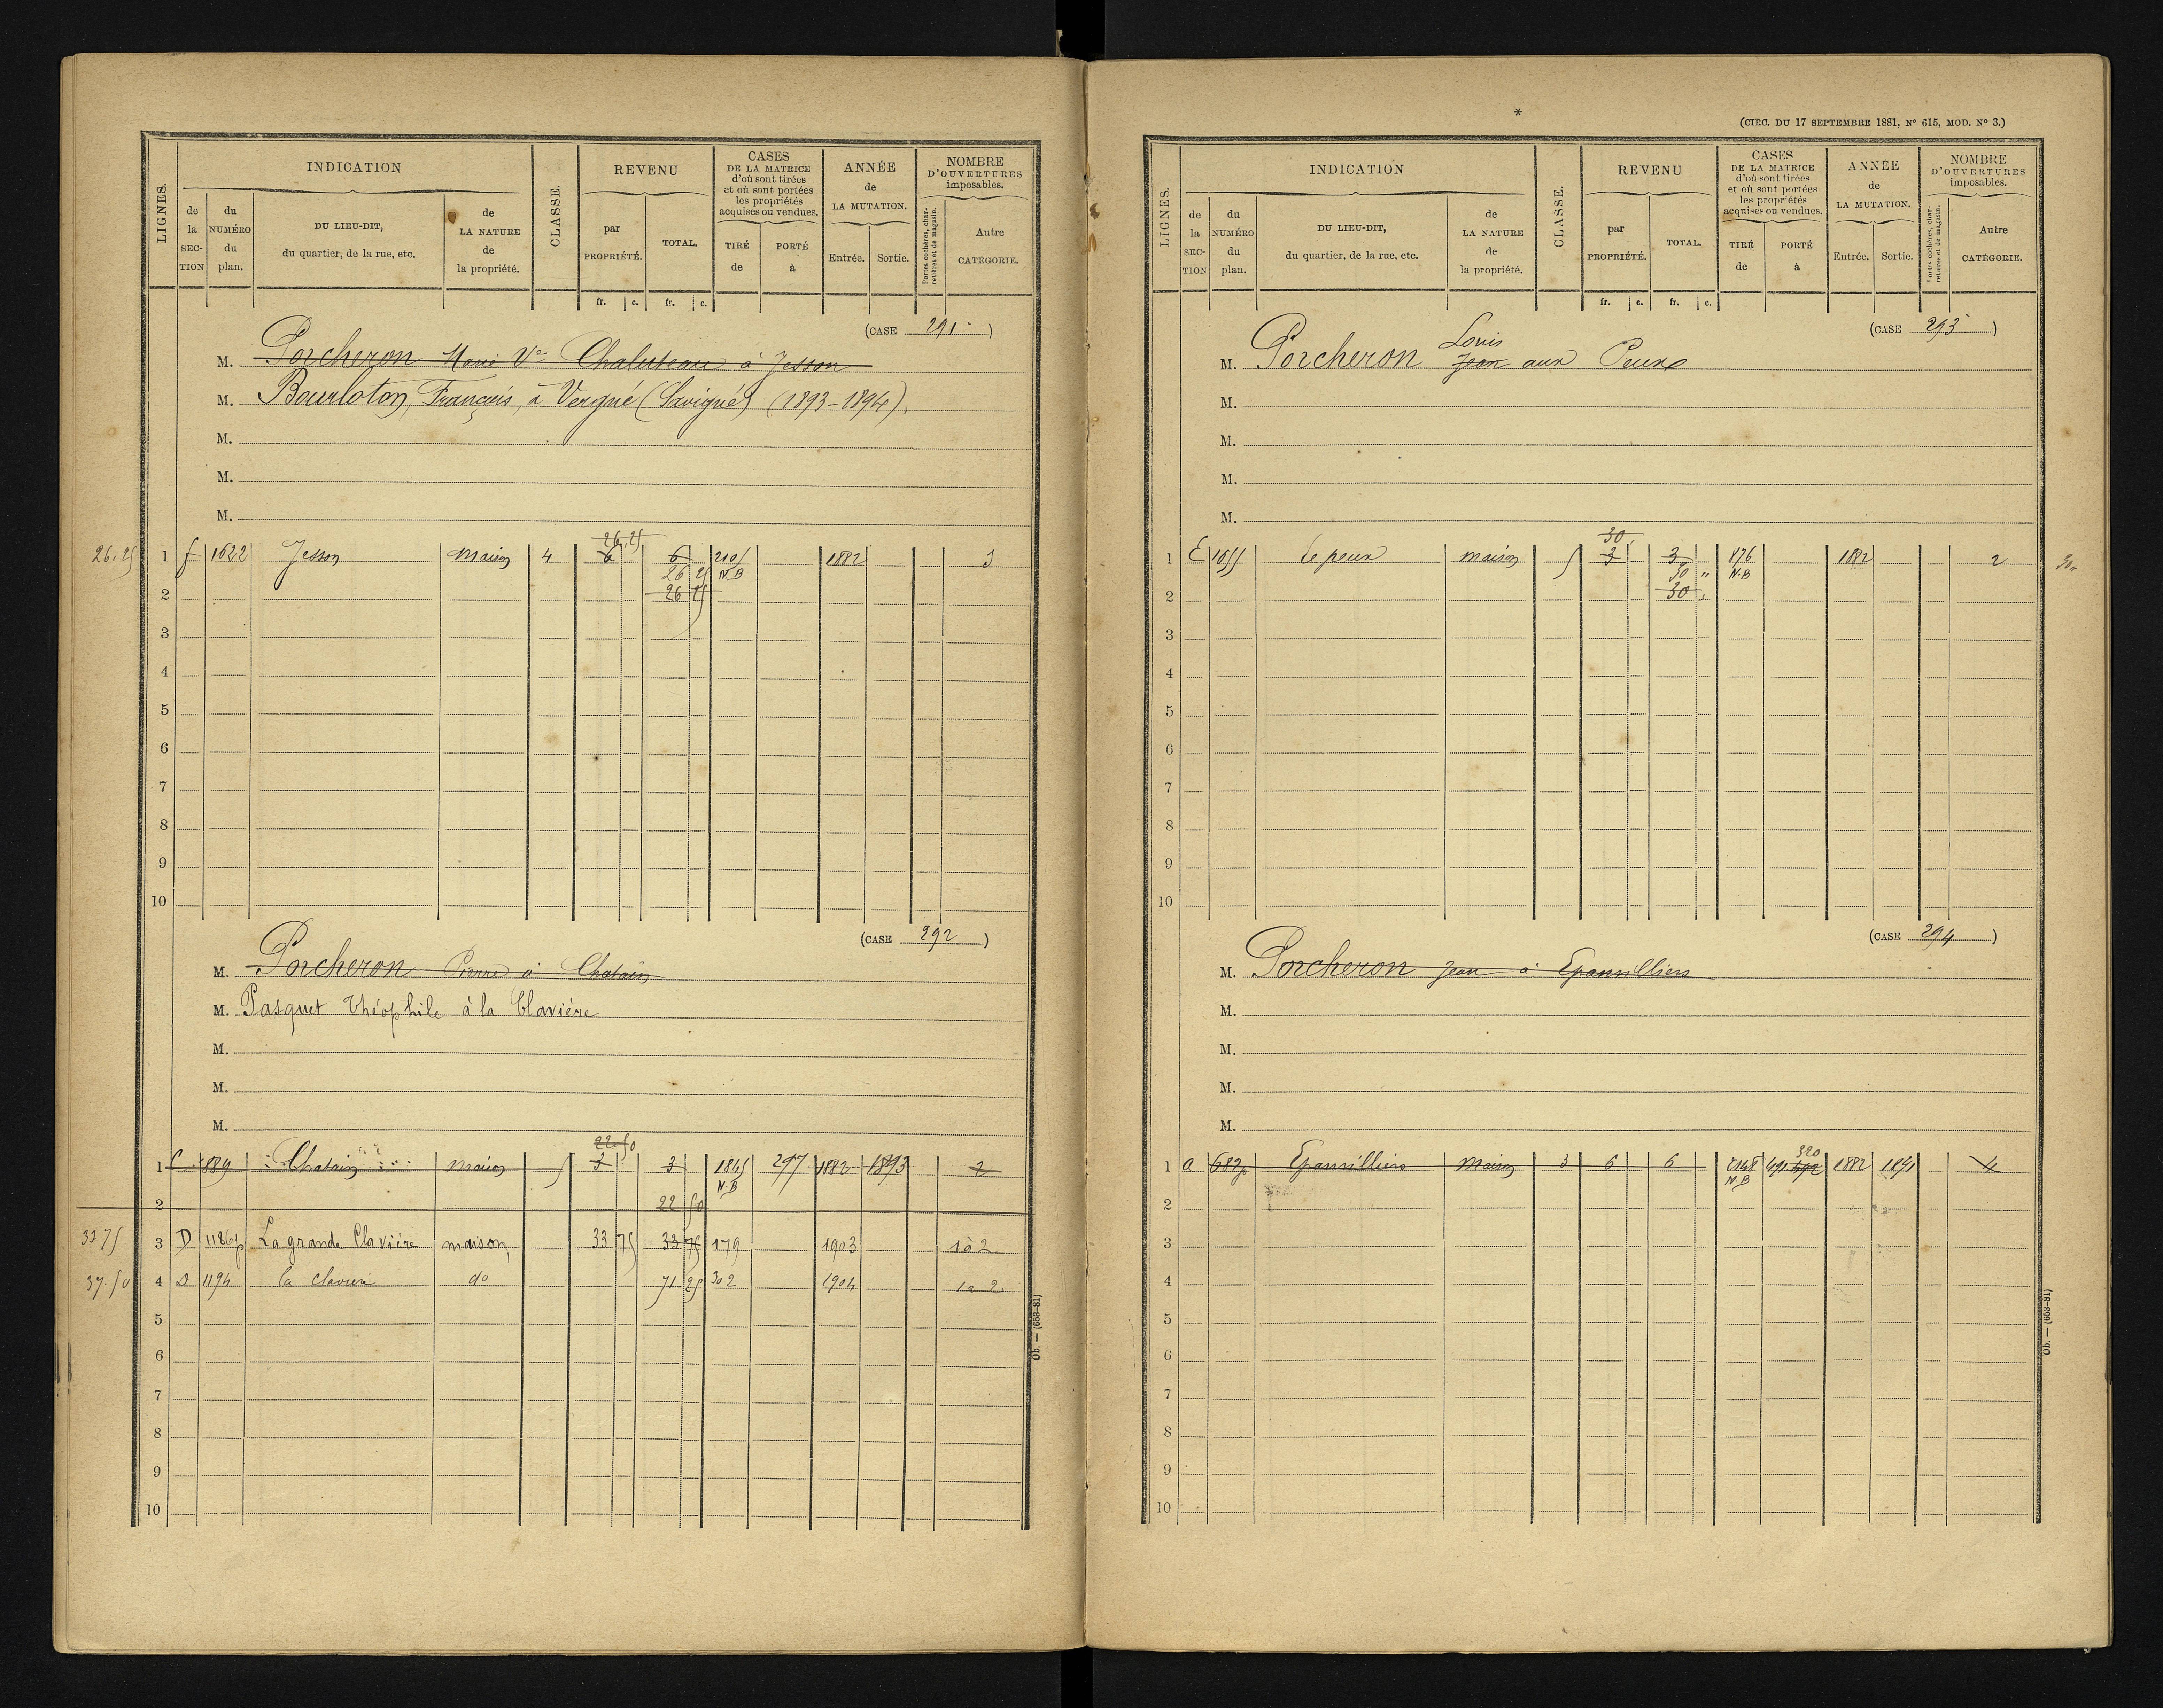 LIGNES.
INDICATION
de la SECTION
du NUMÉRO du plan.
DU LIEU-DIT, du quartier, de la rue, etc.
de LA NATURE de la propriété.
CLASSE.
REVENU
par PROPRIÉTÉ.
TOTAL.
fr. c. fr. c.
CASES DE LA MATRICE d'où sont tirées et où sont portées les propriétés acquises ou vendues.
TIRÉ de
PORTÉ à
ANNÉE de LA MUTATION.
Entrée. Sortie.
NOMBRE D'OUVERTURES imposables.
Portes cochères, charretières et de magasin.
Autre CATÉGORIE.
(CASE 291)
M. Porcheron Marie Ve Chaluteau à Jesson
M. Bourloton, François, à Vergné (Savigné) (1893-1894).
M.
M.
M.
26.25
26.25 1 f 1622 Jesson Maison 4 6 6 2105 1882 3
26 25 N.B
2 26 25
3
4
5
6
7
8
9
10
(CASE 292)
M. Porcheron Pierre à Chatain
M. Pasquet Théophile à la Clavière
M.
M.
M.
22.50
1 C 889 Chatain Maison 5 3 3 1865 297 1882 1893 2
N.B
2 22 50
33 75 3 D 1186p La grande Clavière maison 33 75 33 75 179 1903 1 à 2
37.50 4 D 1194 la clavière do 71 25 302 1904 1 à 2
5
6
7
8
9
10
Ob. — (653-81)
*
(CIRC. DU 17 SEPTEMBRE 1881, N° 615, MOD. N° 3.)
LIGNES.
INDICATION
de la SECTION
du NUMÉRO du plan.
DU LIEU-DIT, du quartier, de la rue, etc.
de LA NATURE de la propriété.
CLASSE.
REVENU
par PROPRIÉTÉ.
TOTAL.
fr. c. fr. c.
CASES DE LA MATRICE d'où sont tirées et où sont portées les propriétés acquises ou vendues.
TIRÉ de
PORTÉ à
ANNÉE de LA MUTATION.
Entrée. Sortie.
NOMBRE D'OUVERTURES imposables.
Portes cochères, charretières et de magasin.
Autre CATÉGORIE.
(CASE 293)
Louis
M. Porcheron Jean aux Peux
M.
M.
M.
M.
30
1 E 1655 Le peux maison 5 3 3 876 1882 2 30
30 " N.B
2 30
3
4
5
6
7
8
9
10
(CASE 294)
M. Porcheron Jean à Epanvilliers
M.
M.
M.
M.
320
1 a 682p Epanvilliers Maison 3 6 6 2148 491 1882 1891 4
N.B
2
3
4
5
6
7
8
9
10
Ob. — (653-81)